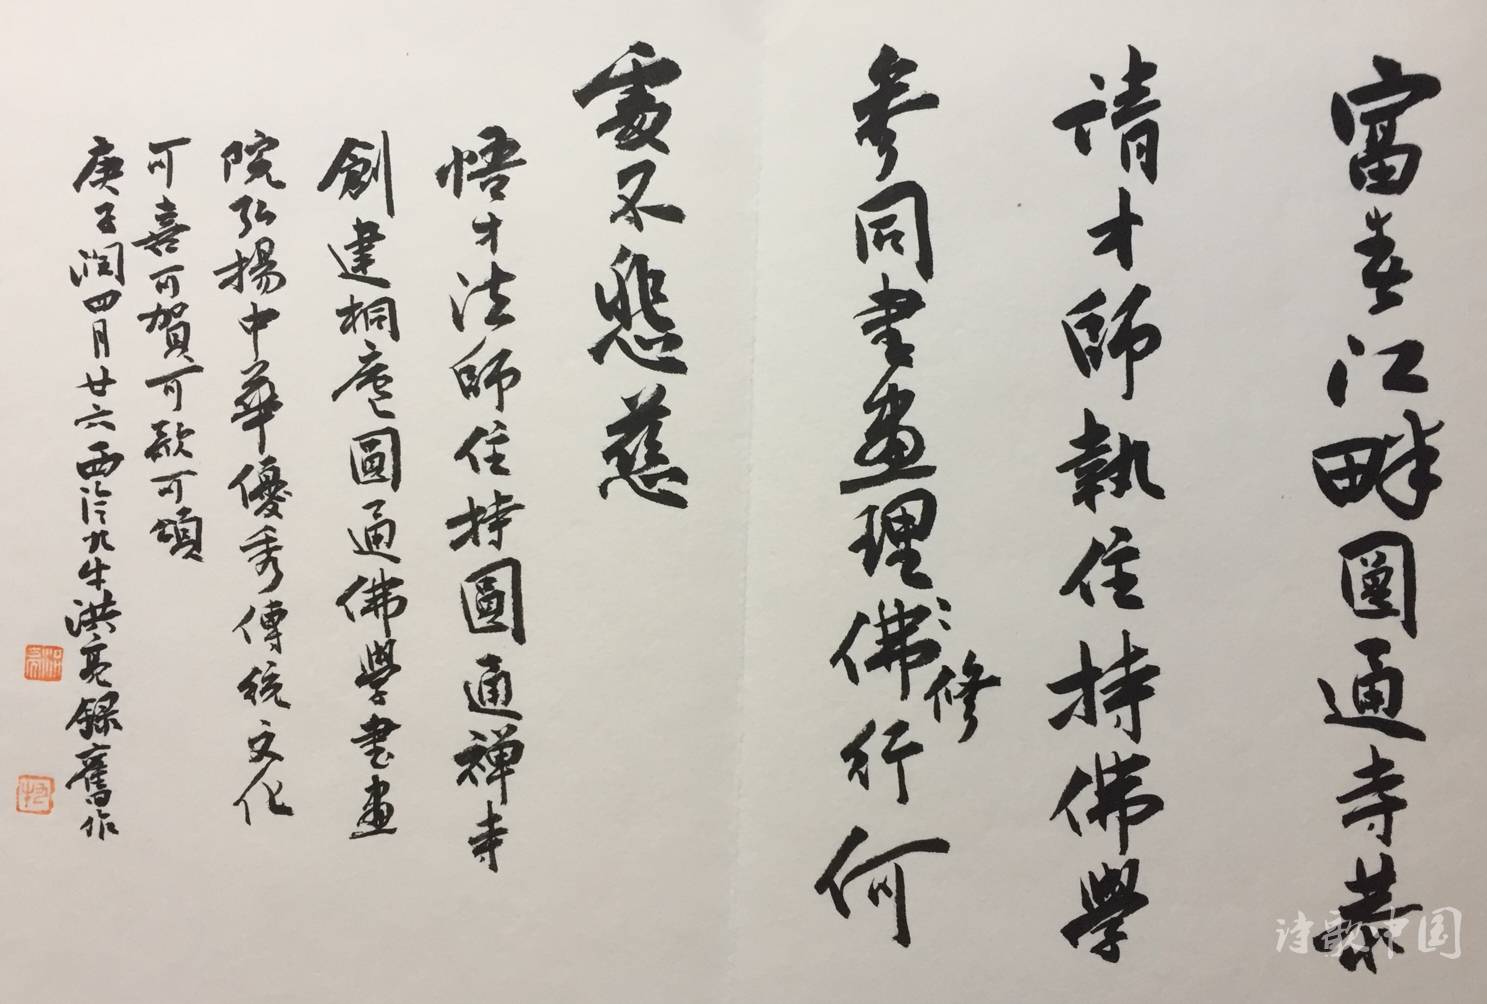 富春江畔圓通寺恭
請才師執住持佛學
參同書畫理佛行何
修
處不悲慈
悟才法師住持圓通禪寺
創建桐廬圓通佛學書畫
院弘揚中華優秀傳統文化
可喜可賀可歌可頌
庚子潤四月廿六西泠九牛洪亮録舊作
诗歌中国